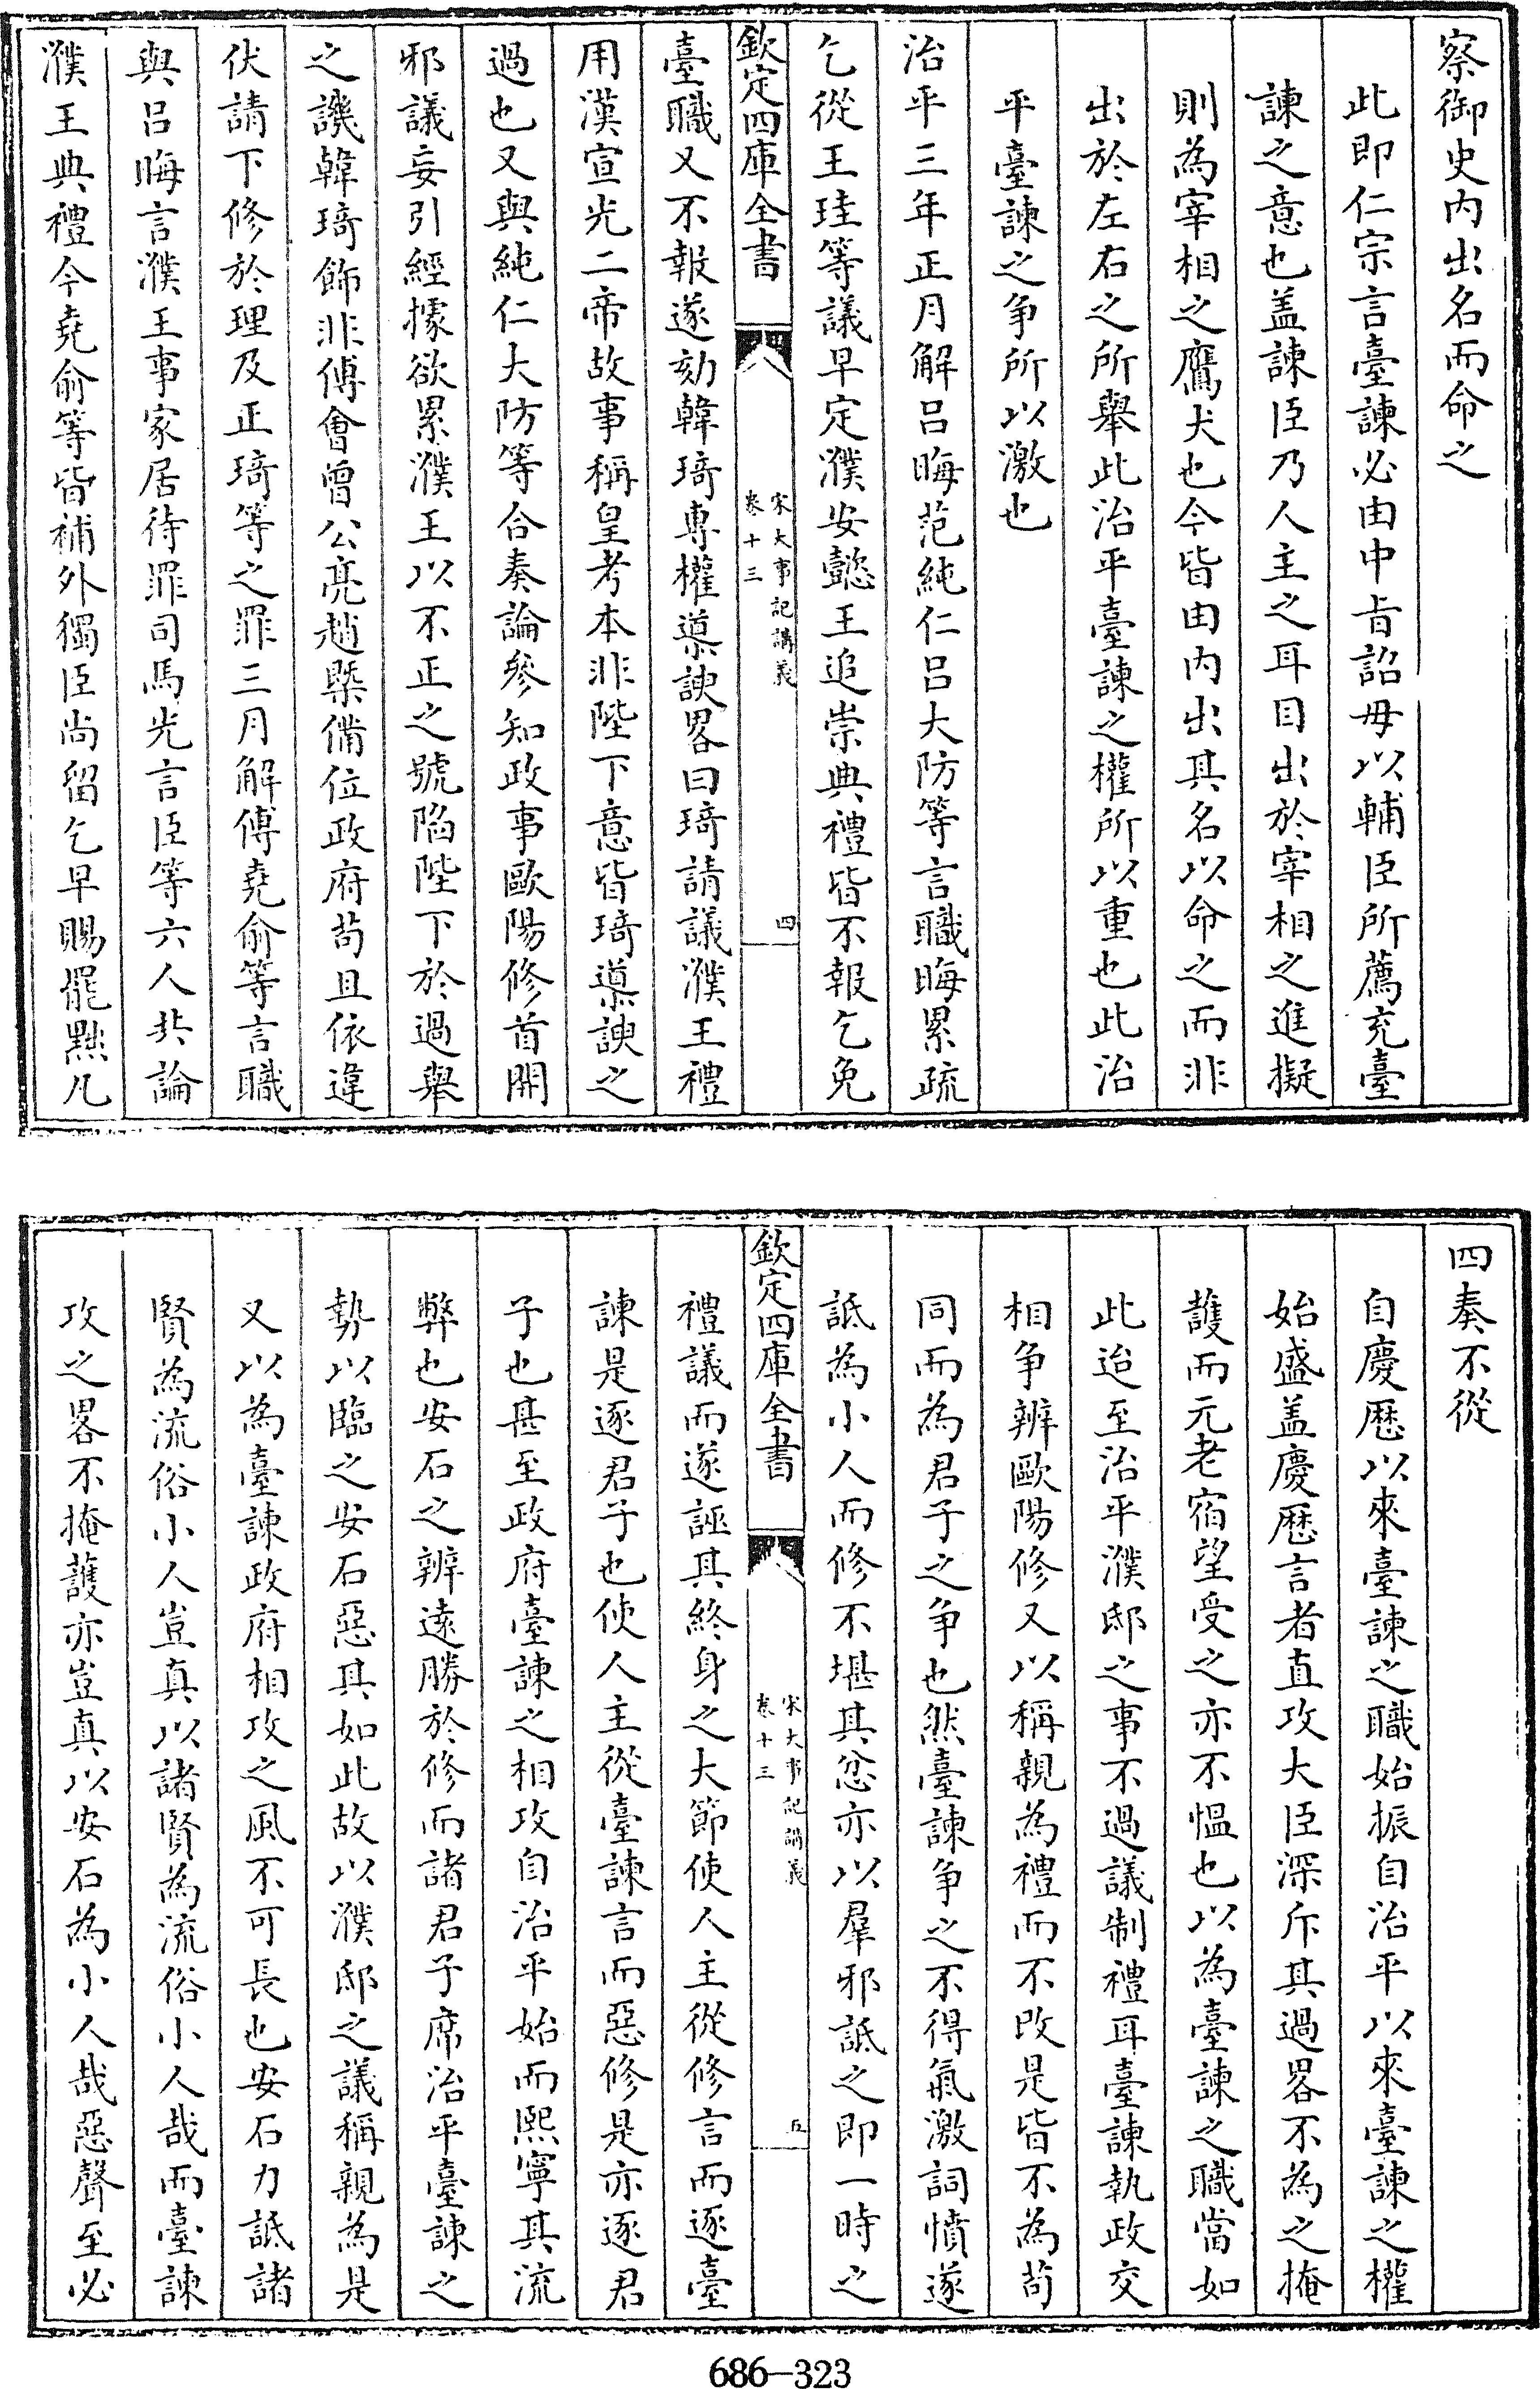 察御史内出名而命之
此即仁宗言臺諫必由中㫖詔毋以輔臣所薦充臺
諫之意也盖諫臣乃人主之耳目出於宰相之進擬
則為宰相之鷹犬也今皆由内出其名以命之而非
出於左右之所舉此治平臺諫之權所以重也此治
平臺諫之争所以激也
治平三年正月解吕晦范純仁吕大防等言職晦累疏
乞從王珪等議早定濮安懿王追崇典禮皆不報乞免
欽定四庫全書
宋大事記講義
卷十三
四
臺職又不報遂劾韓琦專權導諛畧曰琦請議濮王禮
用漢宣光二帝故事稱皇考本非陛下意皆琦導諛之
過也又與純仁大防等合奏論參知政事歐陽修首開
邪議妄引經據欲累濮王以不正之號陷陛下於過舉
之譏韓琦飾非傅會曾公亮趙槩備位政府茍且依違
伏請下修於理及正琦等之罪三月解傅堯俞等言職
與吕晦言濮王事家居待罪司馬光言臣等六人共論
濮王典禮今堯俞等皆補外獨臣尚留乞早賜罷黜凡
四奏不從
自慶厯以來臺諫之職始振自治平以來臺諫之權
始盛盖慶厯言者直攻大臣深斥其過畧不為之掩
護而元老宿望受之亦不愠也以為臺諫之職當如
此迨至治平濮邸之事不過議制禮耳臺諫執政交
相争辨歐陽修又以稱親為禮而不改是皆不為茍
同而為君子之争也然臺諫争之不得氣激詞憤遂
詆為小人而修不堪其忿亦以羣邪詆之即一時之
欽定四庫全書
宋大事記講義
卷十三
五
禮議而遂誣其終身之大節使人主從修言而逐臺
諫是逐君子也使人主從臺諫言而惡修是亦逐君
子也甚至政府臺諫之相攻自治平始而熙寧其流
弊也安石之辨遠勝於修而諸君子席治平臺諫之
勢以臨之安石惡其如此故以濮邸之議稱親為是
又以為臺諫政府相攻之風不可長也安石力詆諸
賢為流俗小人豈真以諸賢為流俗小人哉而臺諫
攻之畧不掩護亦豈真以安石為小人哉惡聲至必
686-323